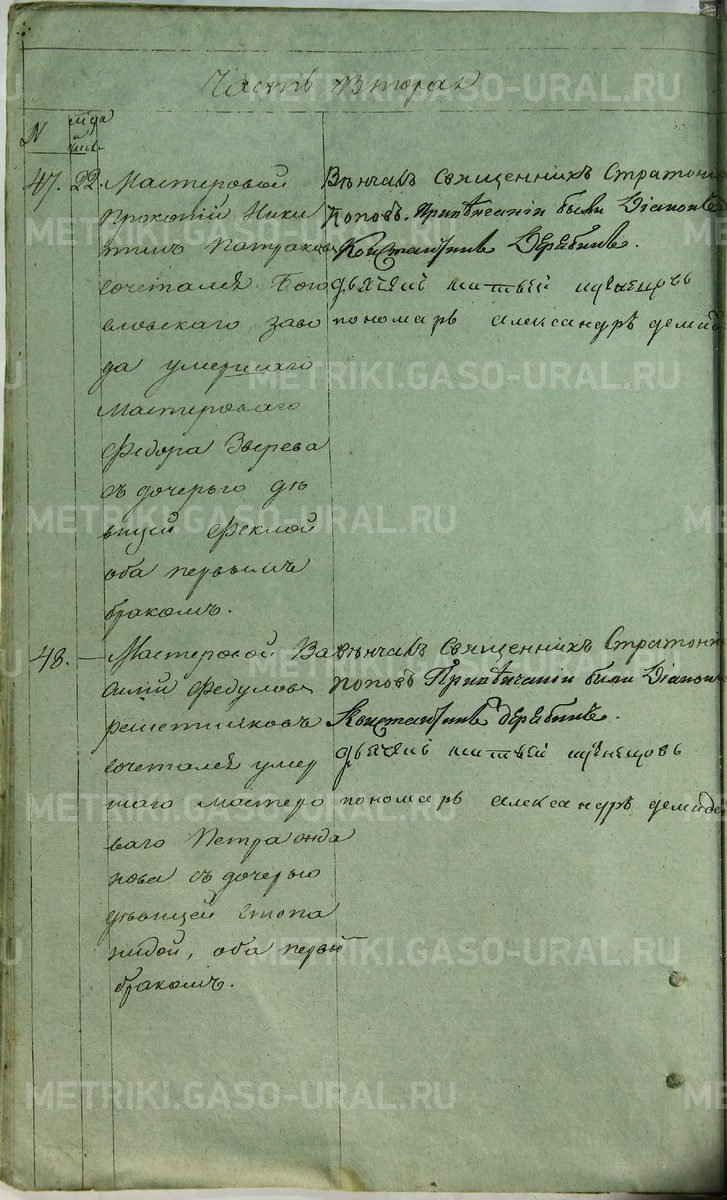 Часть Вторая
N
м-ца
и
числ.
47. 22. Мастеровой
Прокопий Ники
тинъ Патраковъ
сочетался Бого
словскаго заво
да умершаго
мастероваго
Федора Зверева
съ дочерью дѣ
вицей Феклой
оба первымъ
бракомъ.
Вѣнчалъ Священникъ Стратони
Поповъ. При вѣнчаніи были Діаконъ
Константинъ Дерябинъ.
дьячекъ матвей
пономарь александръ демид
48. — Мастеровой Ва
силій Федуловъ
решетниковъ
сочетался умер
шаго мастеро
ваго Петра
нова съ дочерью
дѣвицей Епопа
нидой, оба первы
бракомъ.
Вѣнчалъ Священникъ Стратони
поповъ При вѣнчаніи были Діаконъ
Константинъ дерябинъ.
дьячекъ матвей
пономарь александръ демидо
METRIKI.GASO-URAL.RU